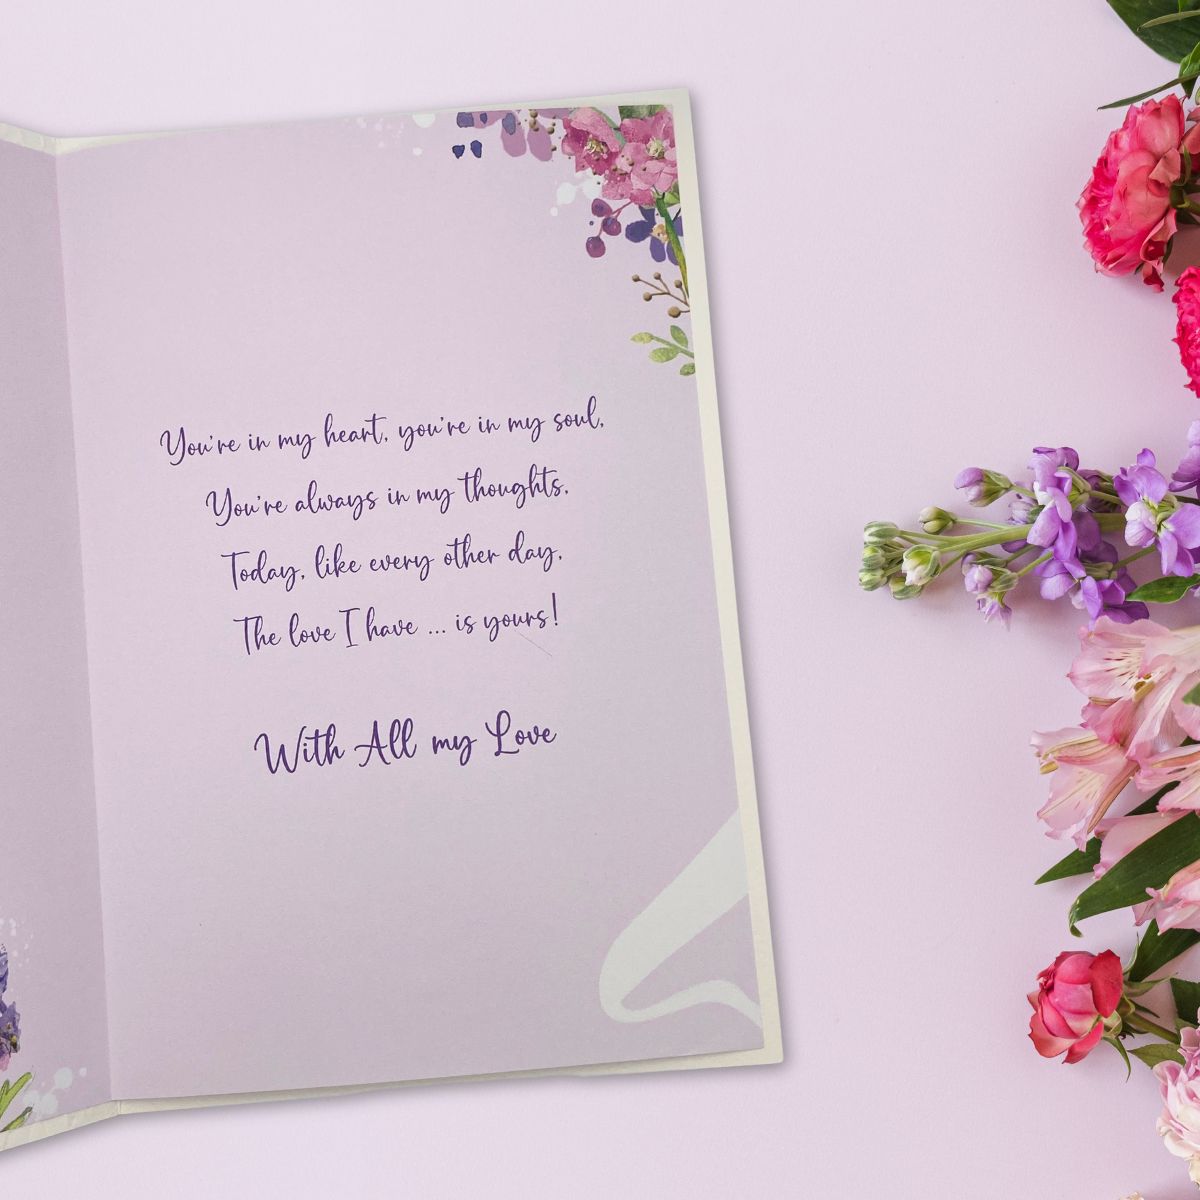 You're in my heart, you're in my soul,
You're always in my thoughts,
Today, like every other day,
The love I have ... is yours!
With All my Love